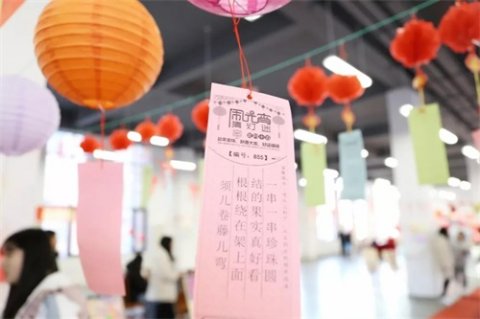 闹元宵
猜灯谜
【编号：855】
一串一串珍珠圆
结的果实真好看
根根绕在架上面
须儿卷藤儿弯